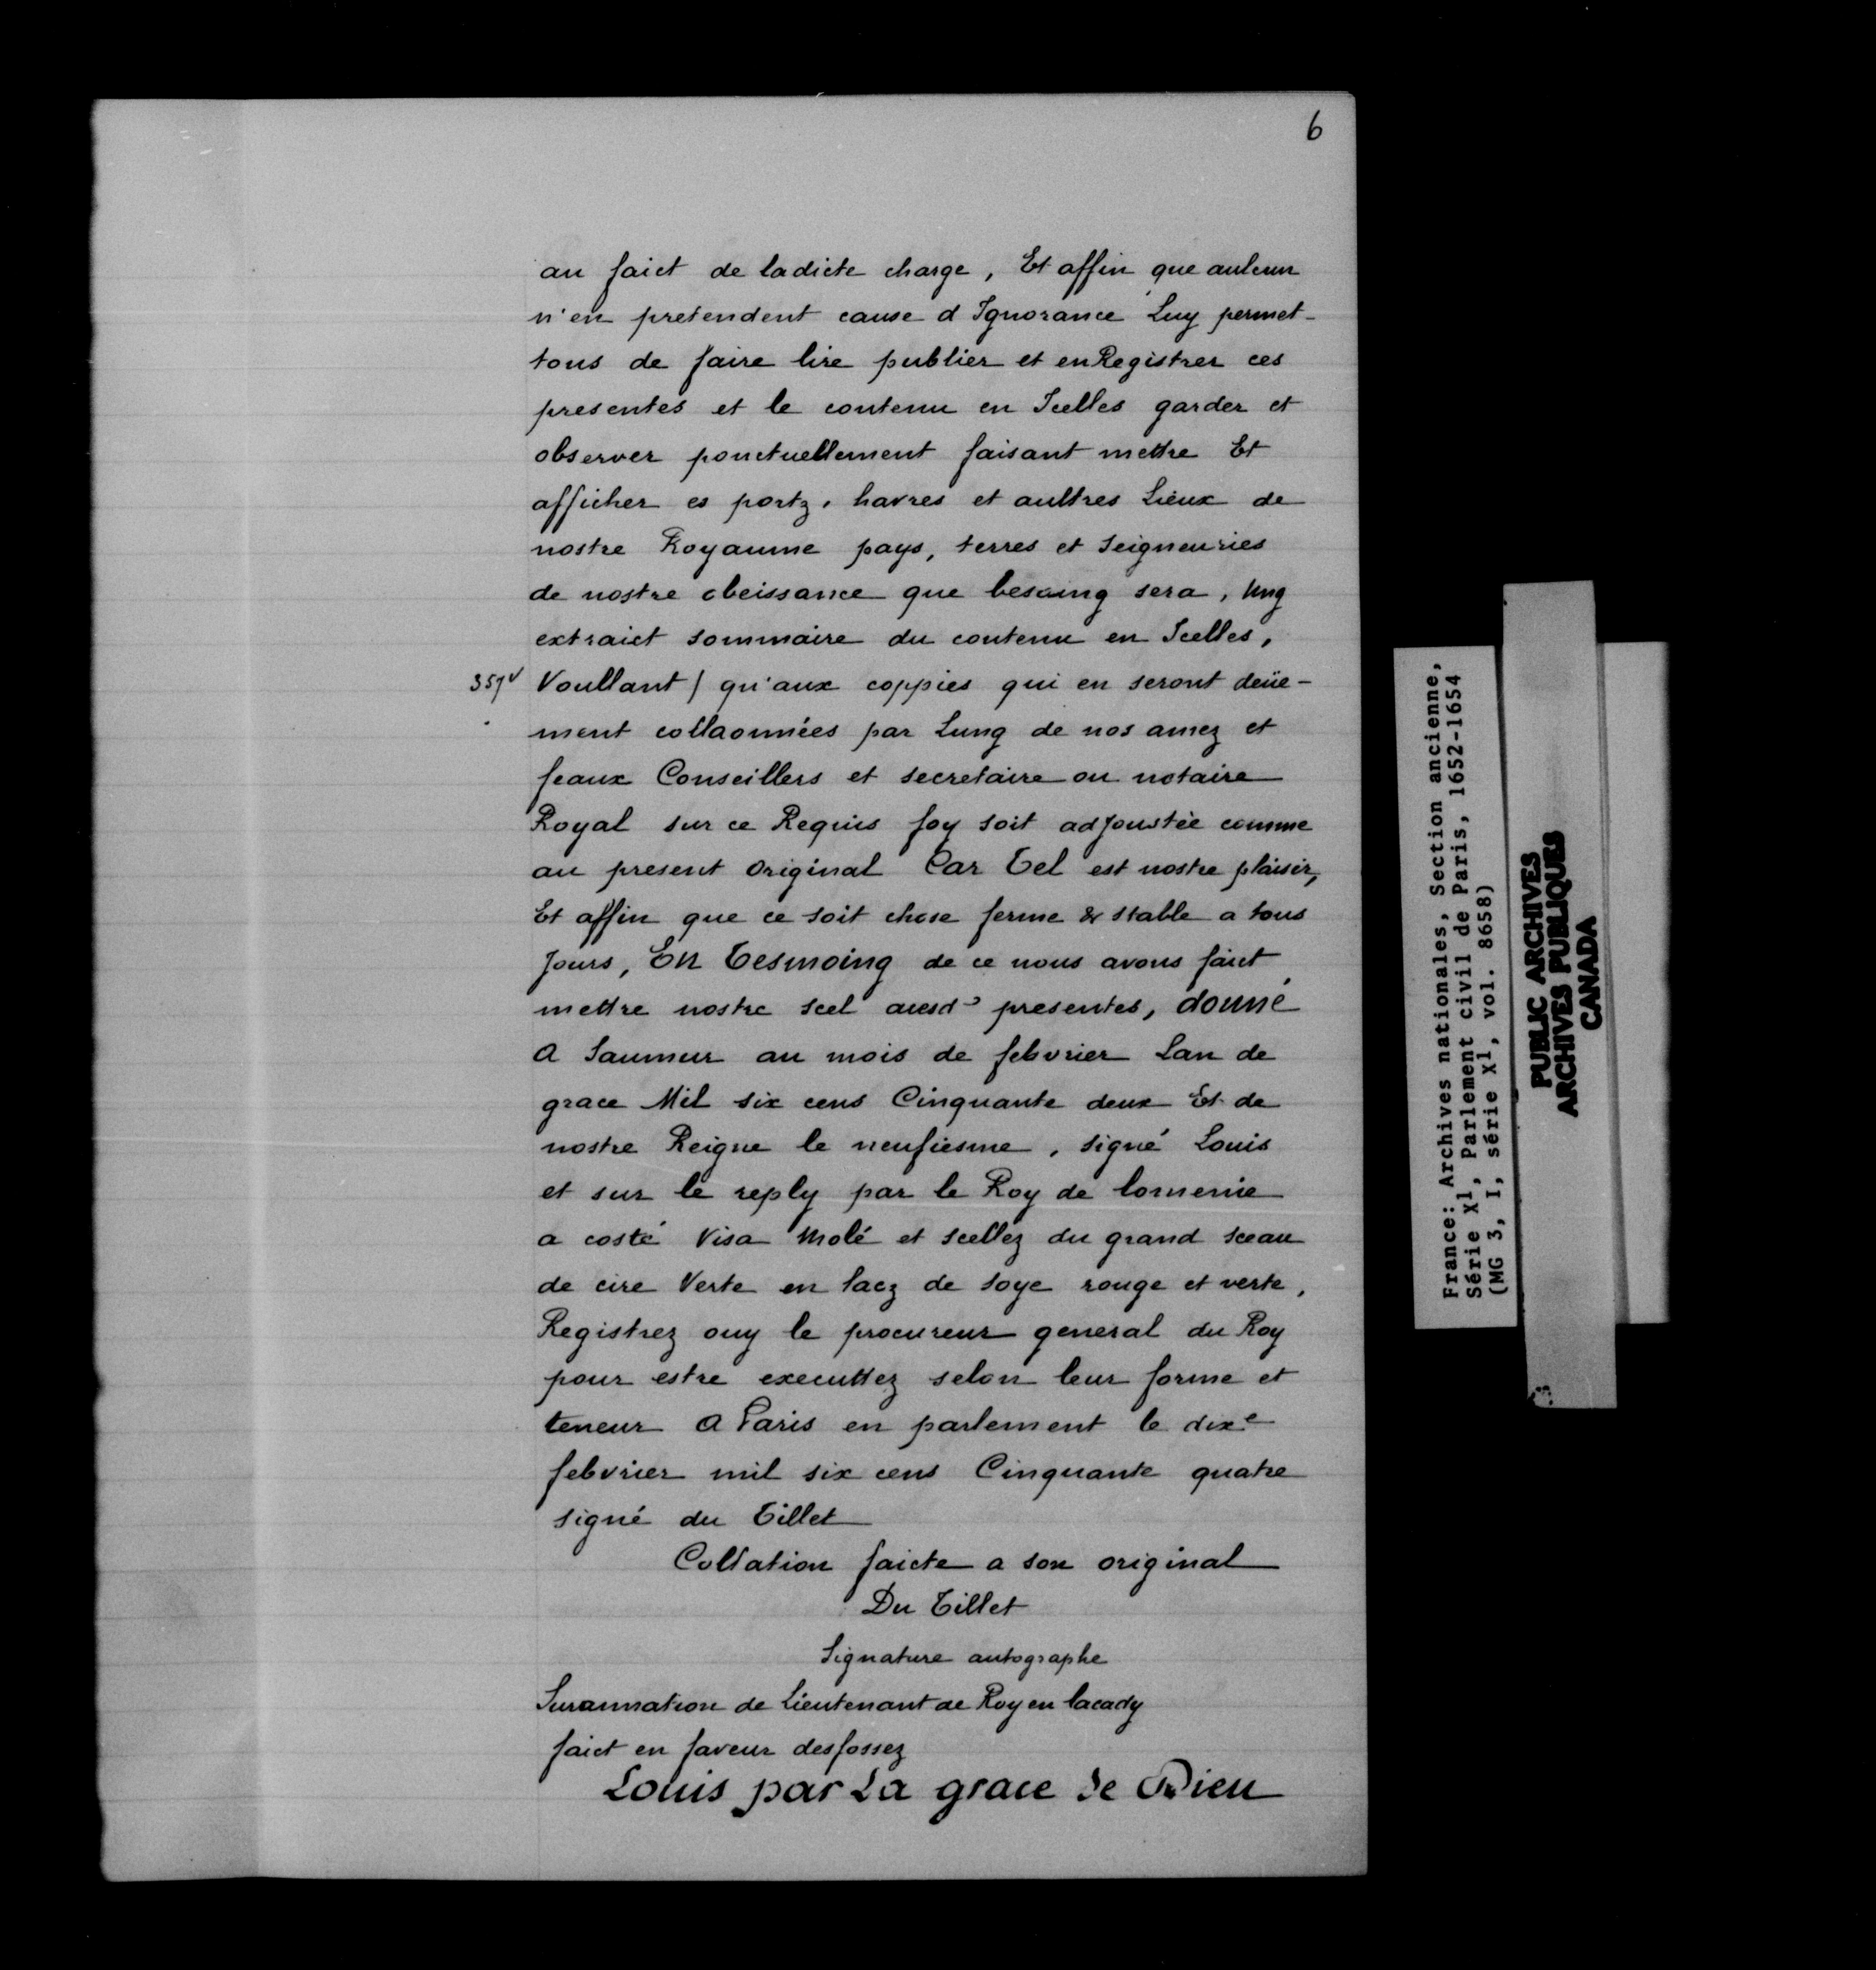 6
au faict de ladicte charge, Et affin que aulcun
n'en pretendent cause d Ignorance Luy permet-
tous de faire lire publier et enRegistrer ces
presentes et le contenu en Icelles garder et
observer ponctuellement faisant mettre Et
afficher es portz, havres et aultres Lieux de
nostre Royaume pays, terres et Seigneuries
de nostre obeissance que besoing sera, Ung
extraict sommaire du contenu en Icelles,
357v Voullant / qu'aux coppies qui en seront deüe-
ment collaonnées par Lung de nos amez et
feaux Conseillers et secretaire ou notaire
Royal sur ce Requis foy soit adjoustée comme
au present Original Car Tel est nostre plaisir,
Et affin que ce soit chose ferme & stable a tous
Jours, En Tesmoing de ce nous avons faict
mettre nostre scel ausds presentes, donné
A Saumur au mois de febvrier Lan de
grace Mil six cens Cinquante deux Et de
nostre Reigne le neufiesme, signé Louis
et sur le reply par le Roy de lomenie
a costé Visa Molé et scellez du grand sceau
de cire Verte en lacz de soye rouge et verte,
Registrez ouy le procureur general du Roy
pour estre executtez selon leur forme et
teneur A Paris en parlement le dixe
febvrier mil six cens Cinquante quatre
signé du Tillet
Collation faicte a son original
Du Tillet
Signature autographe
Surannation de Lieutenant de Roy en lacady
faict en faveur desfossez
Louis par La grace de Dieu
France: Archives nationales, Section ancienne,
Série X1, Parlement civil de Paris, 1652-1654
(MG 3, I, série X1, vol. 8658)
PUBLIC ARCHIVES
ARCHIVES PUBLIQUES
CANADA